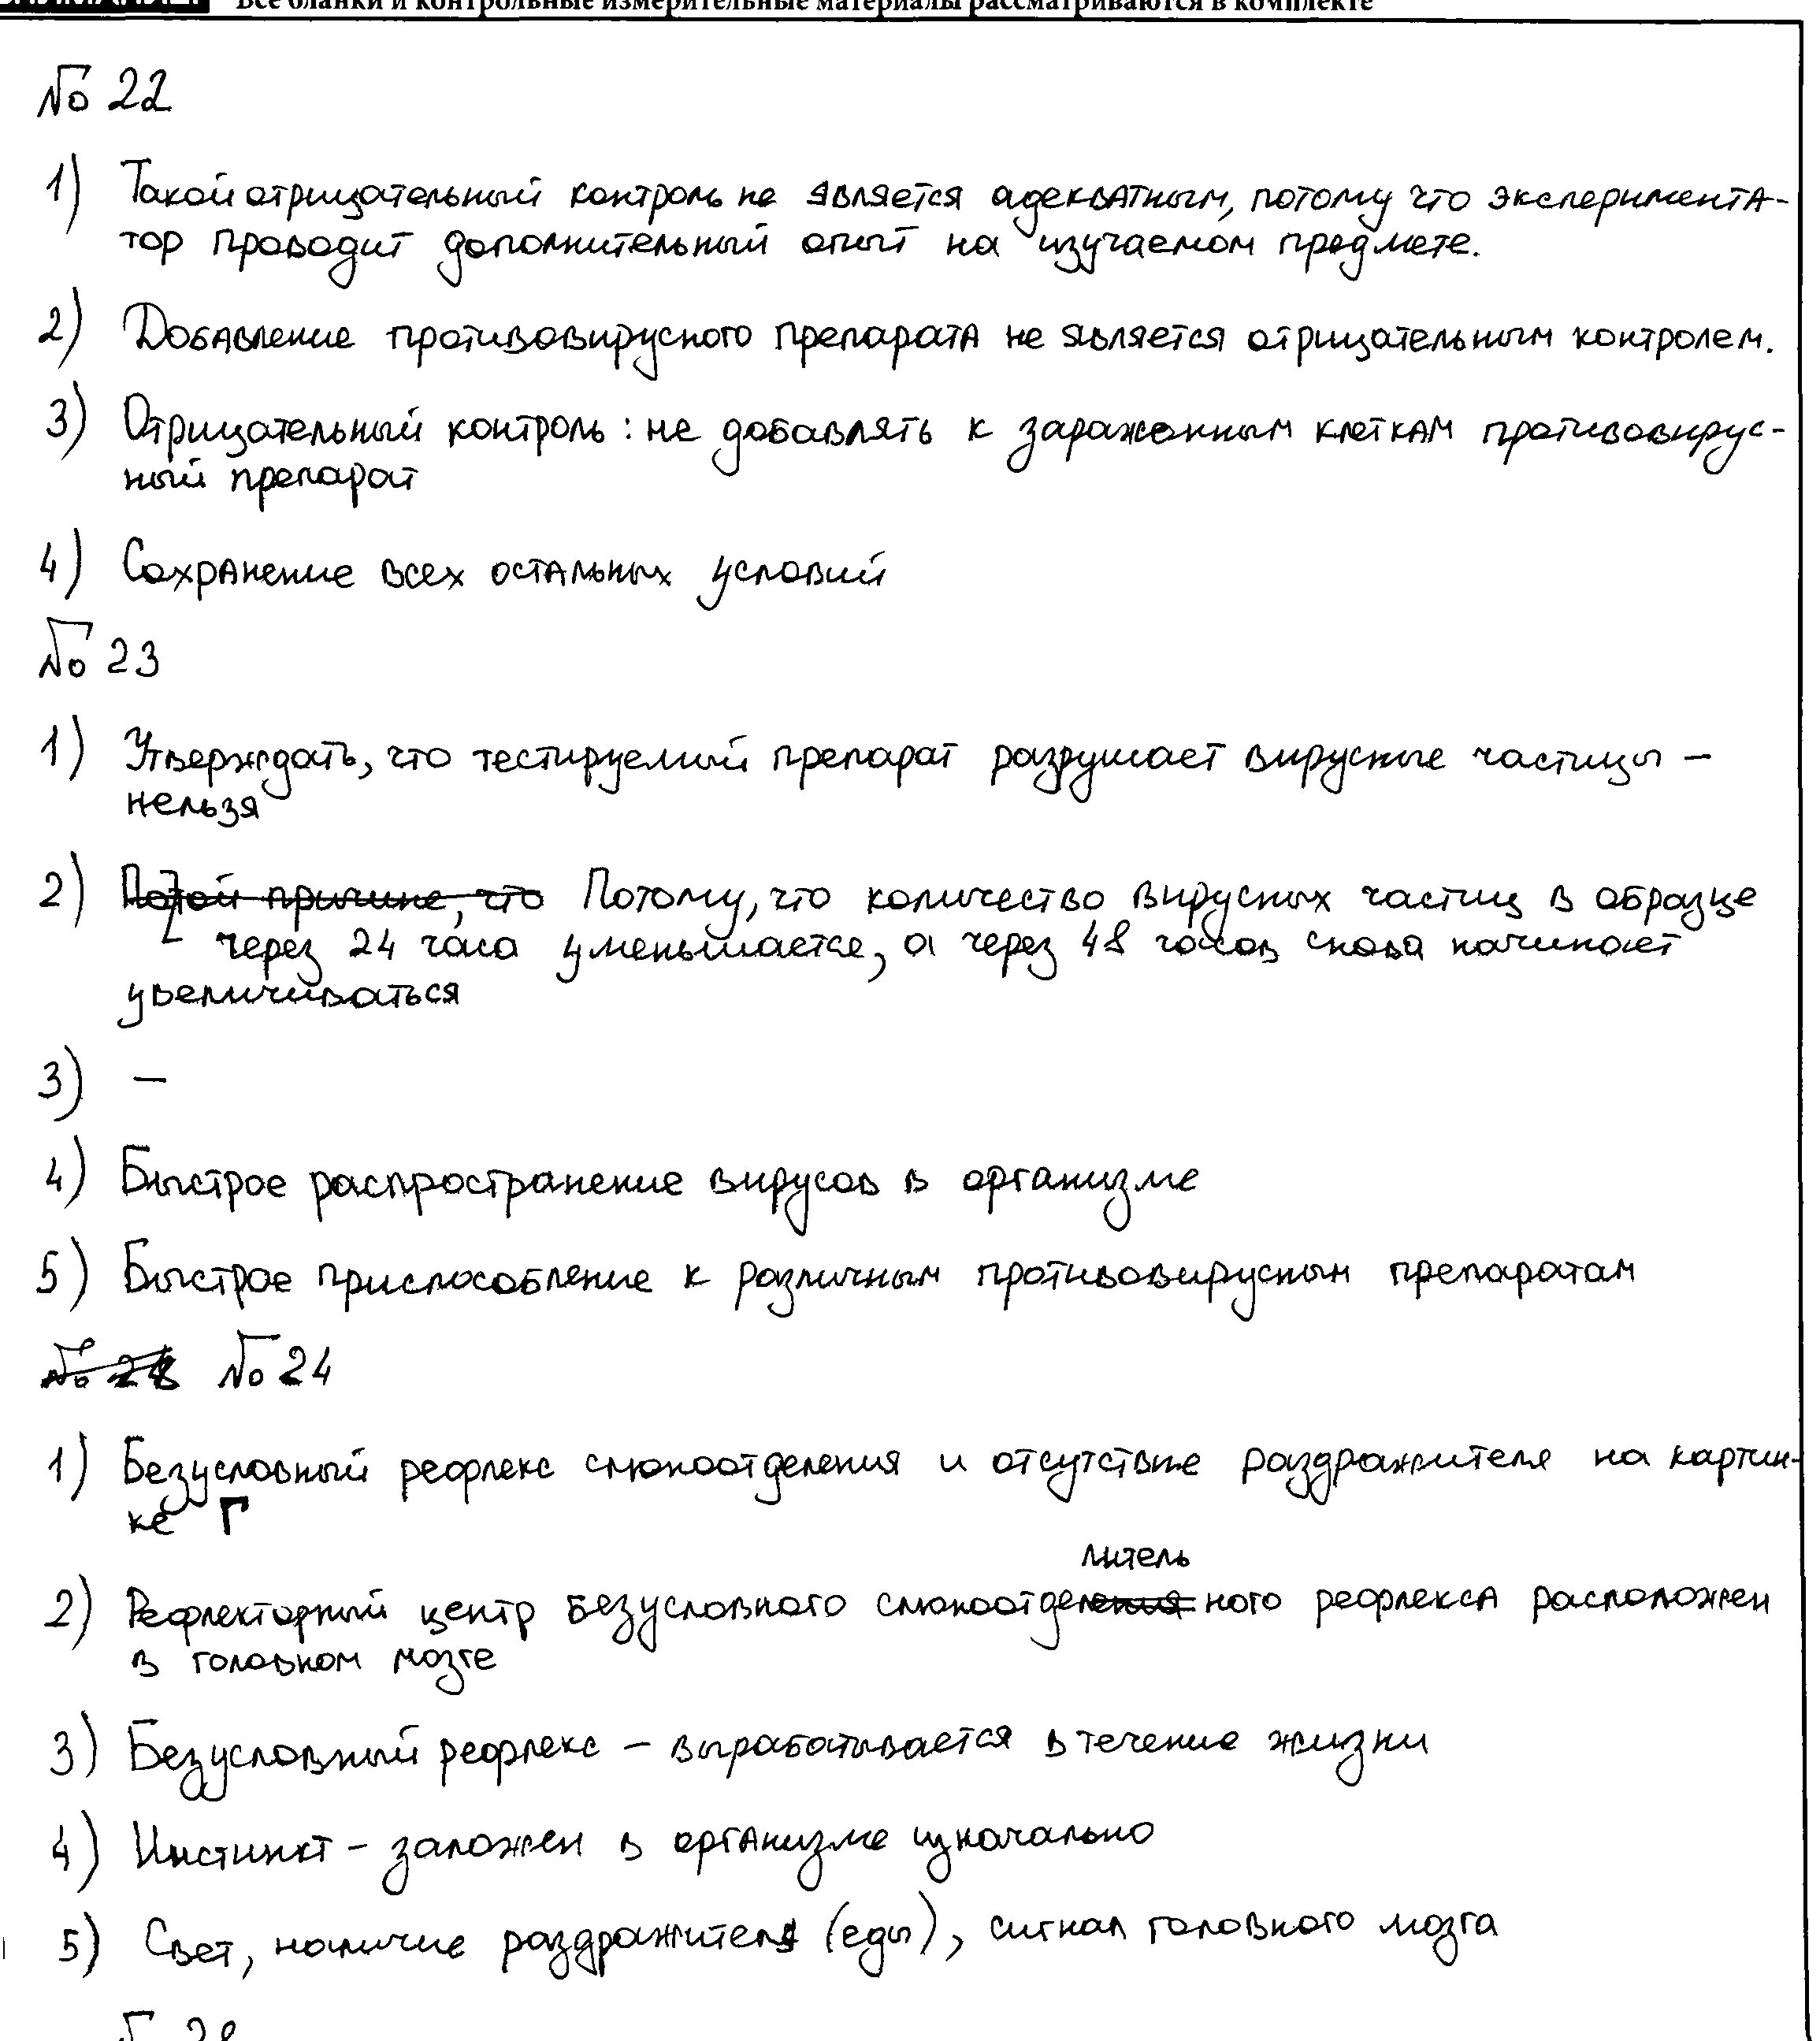 Все бланки и контрольные измерительные материалы рассматриваются в комплекте
№ 22
1) Такой отрицательный контроль не является адекватным, потому что эксперимента-
тор проводит дополнительный опыт на изучаемом предмете.
2) Добавление противовирусного препарата не является отрицательным контролем.
3) Отрицательный контроль: не добавлять к зараженным клеткам противовирус-
ный препарат
4) Сохранение всех остальных условий
№ 23
1) Утверждать, что тестируемый препарат разрушает вирусные частицы –
нельзя
2) По той причине, что Потому, что количество вирусных частиц в образце
через 24 часа уменьшается, а через 48 часов снова начинает
увеличиваться
3) –
4) Быстрое распространение вирусов в организме
5) Быстрое приспособление к различным противовирусным препаратам
№ 24
1) Безусловный рефлекс слюноотделения и отсутствие раздражителя на картин-
ке Г
литель
2) Рефлекторный центр безусловного слюноотделения ного рефлекса расположен
в головном мозге
3) Безусловный рефлекс – вырабатывается в течение жизни
4) Инстинкт – заложен в организме изначально
5) Свет, наличие раздражителя (еды), сигнал головного мозга